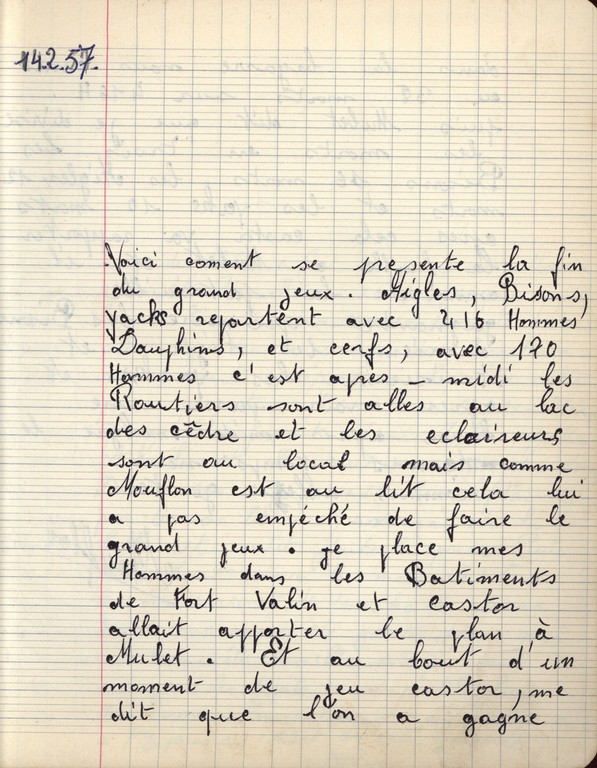 14.2.57.
Voici coment se presente la fin
du grand jeux. Aigles, Bisons,
yacks repartent avec 416 Hommes
Dauphins, et cerfs, avec 170
Hommes c'est après-midi les
Routiers sont alles au lac
des cèdre et les eclaireurs
sont au local mais comme
Mouflon est au lit cela lui
a pas empéché de faire le
grand jeux. je place mes
Hommes dans les Batiments
de Fort Valin et castor
allait apporter le plan à
Mulet. Et au bout d'un
moment de jeu castor, me
dit que l'on a gagne